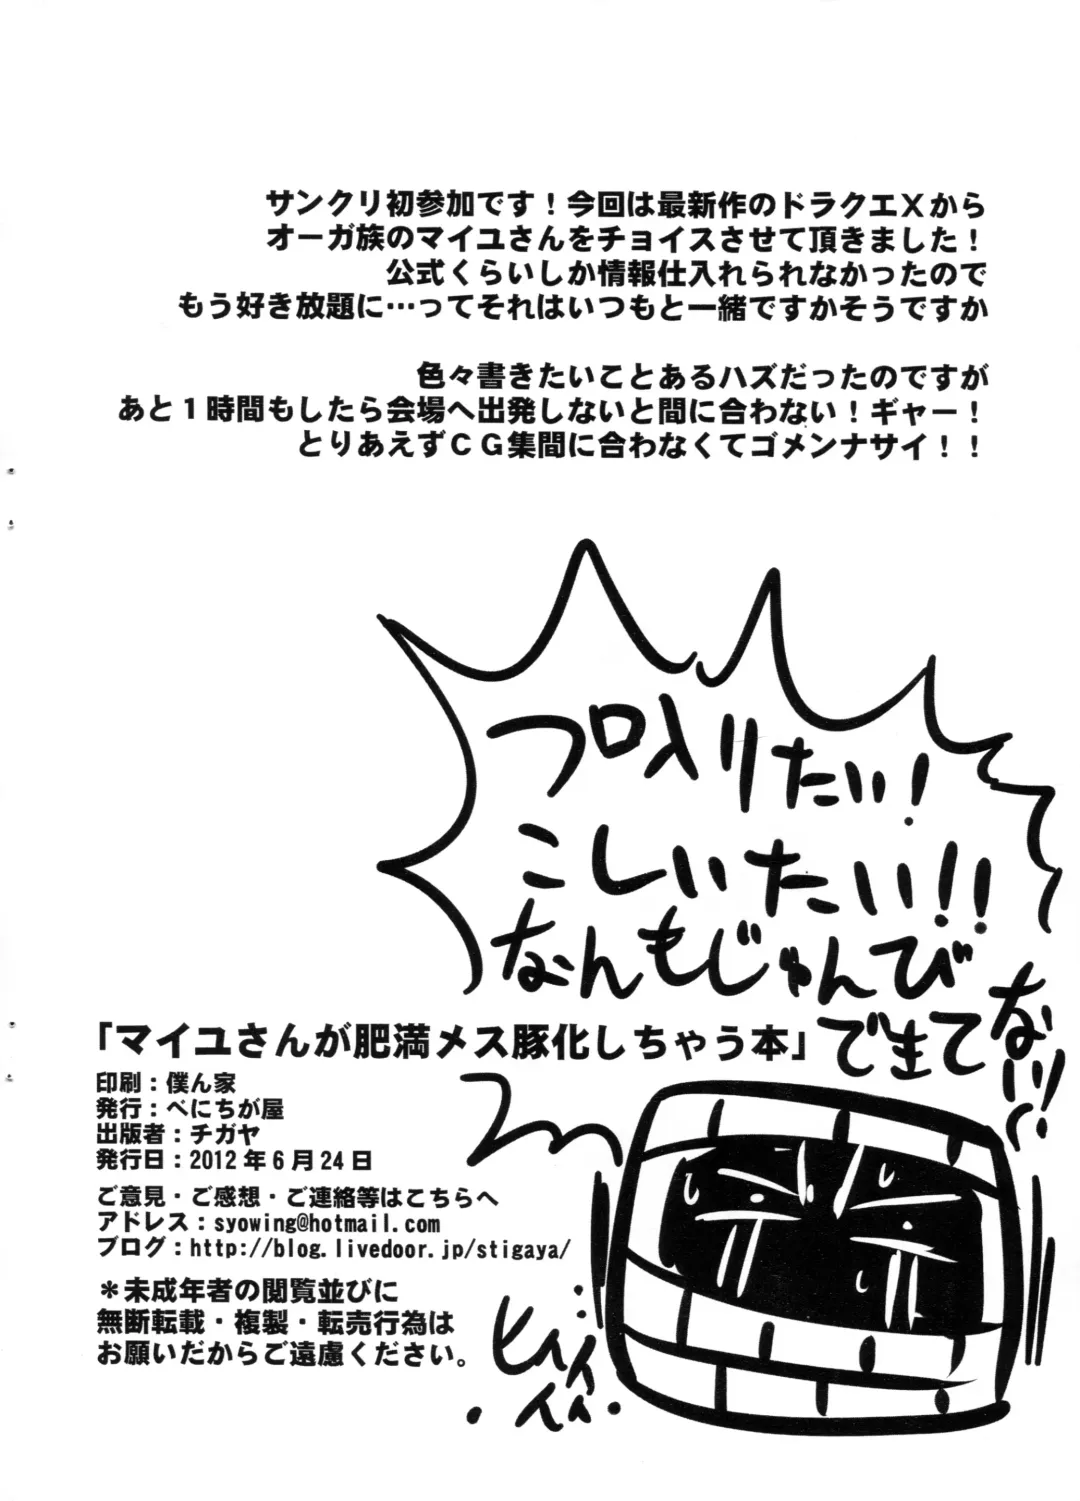 サンクリ初参加です！今回は最新作のドラクエＸから
オーガ族のマイユさんをチョイスさせて頂きました！
公式くらいしか情報仕入れられなかったので
もう好き放題に…ってそれはいつもと一緒ですかそうですか
色々書きたいことあるハズだったのですが
あと１時間もしたら会場へ出発しないと間に合わない！ギャー！
とりあえずＣＧ集間に合わなくてゴメンナサイ！！
フロ入りたい！
こしいたい!!
なんもじゅんび
できて
ない!!
「マイユさんが肥満メス豚化しちゃう本」
印刷：僕ん家
発行：べにちが屋
出版者：チガヤ
発行日：2012年6月24日
ご意見・ご感想・ご連絡等はこちらへ
アドレス：syowing@hotmail.com
ブログ：http://blog.livedoor.jp/stigaya/
＊未成年者の閲覧並びに
無断転載・複製・転売行為は
お願いだからご遠慮ください。